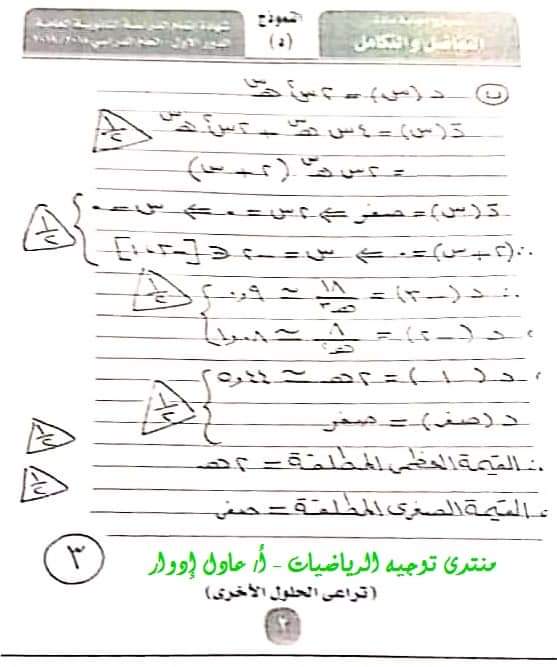 نموذج إجابة مادة
التفاضل والتكامل
النموذج
(د)
شهادة إتمام الدراسة الثانوية العامة
الدور الأول - العام الدراسي ٢٠١٨/٢٠١٧
(ب) د(س) = ٢س² هـ^س
دَ(س) = ٤س هـ^س + ٢س² هـ^س
١/٢
= ٢س هـ^س (٢ + س)
دَ(س) = صفر ⇐ ٢س = ٠ ⇐ س = ٠
١/٢
∴ (٢ + س) = ٠ ⇐ س = -٢ ∈ [-٣، ١]
∴ د(-٣) = ١٨/هـ³ ≃ ٠٫٩
١/٢
، د(-٢) = ٨/هـ² ≃ ١٫٠٨
، د(١) = ٢هـ ≃ ٥٫٤٤
١/٢
د(صفر) = صفر
∴ القيمة العظمى المطلقة = ٢هـ
١/٢
، القيمة الصغرى المطلقة = صفر
١/٢
٣
منتدى توجيه الرياضيات - أ/ عادل إدوار
(تراعى الحلول الأخرى)
٢